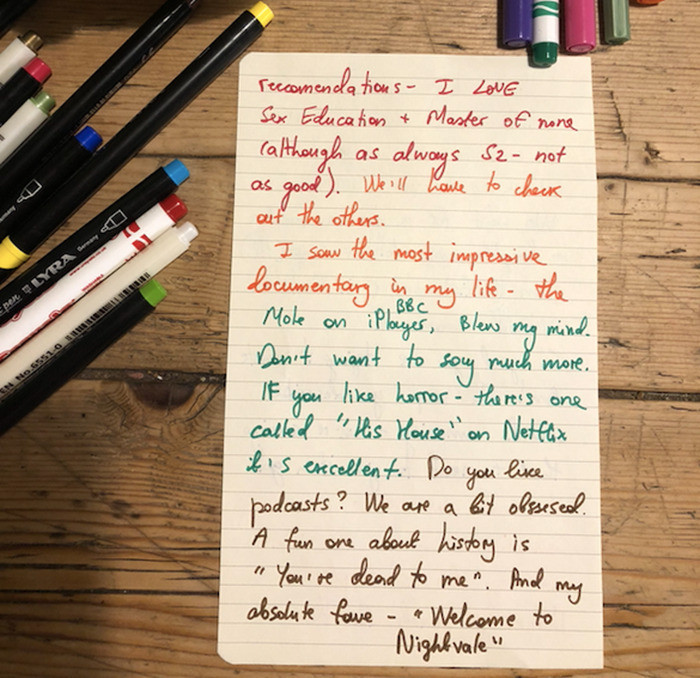 reccomendations - I LOVE
Sex Education + Master of none
(although as always S2 - not
as good). We'll have to check
out the others.
I saw the most impressive
documentary in my life - the
Mole on BBC iPlayer, Blew my mind.
Don't want to say much more.
IF you like horror - there's one
called "His House" on Netflix
it's excellent. Do you like
podcasts? We are a bit obssesed.
A fun one about history is
"You're dead to me". And my
absolute fave - "Welcome to
Nightvale"
LYRA
Germany